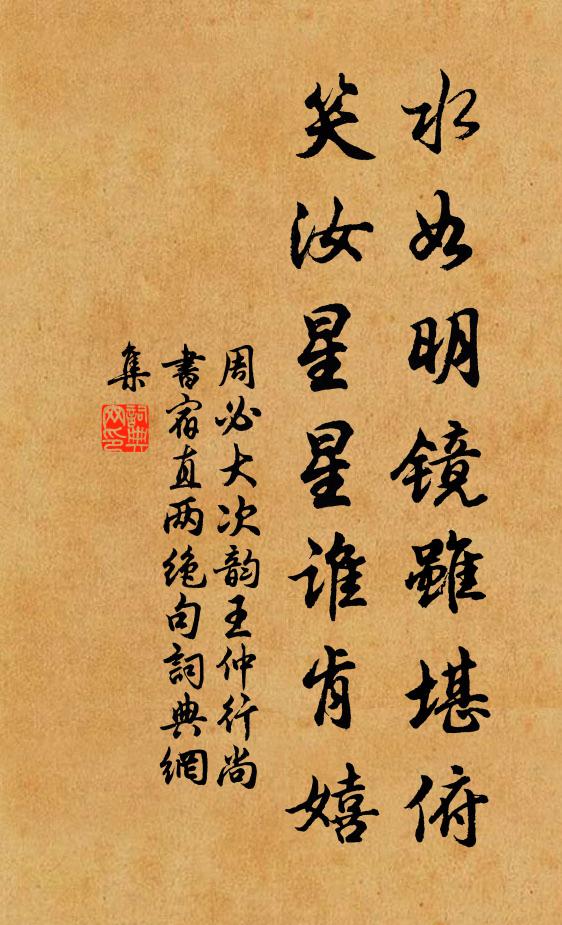 水如明镜雖堪俯
笑汝星星谁肯嬉
周必大次韵王仲行尚
書宿直两绝句詞典網
集
詞典
网印